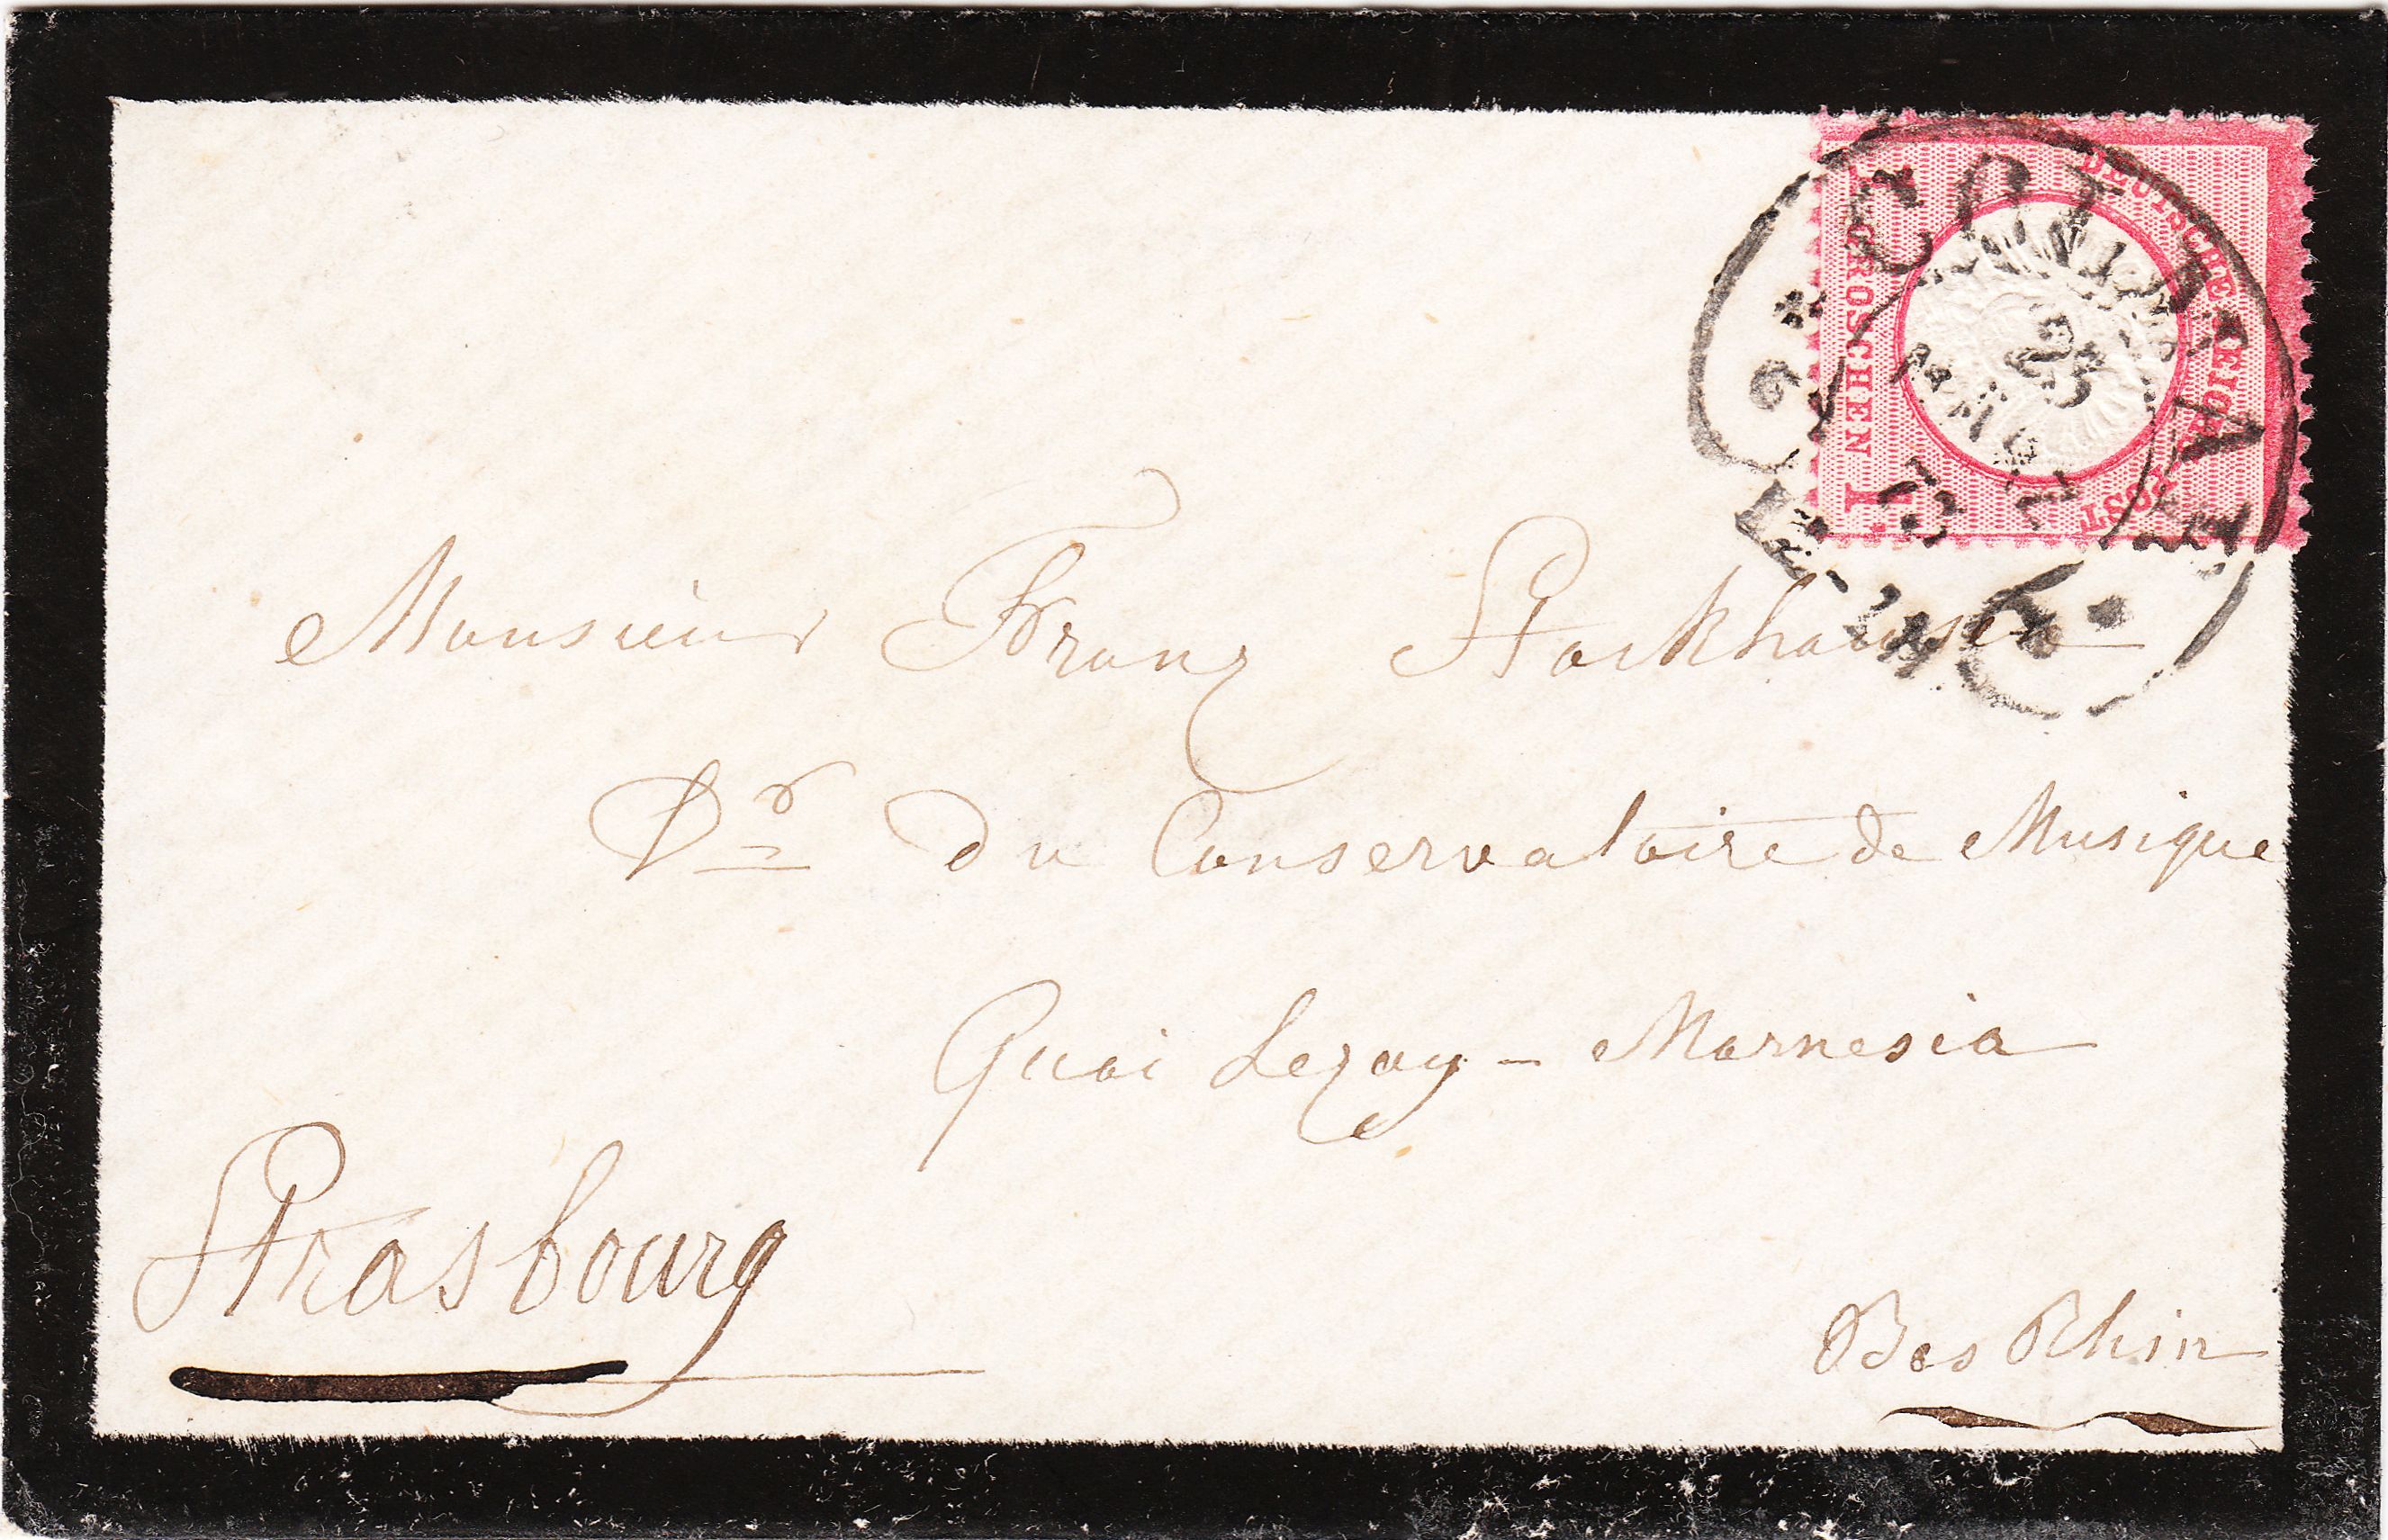 DEUTSCHE REICHS POST
GROSCHEN 1.
COLMAR
73
Monsieur Franz Stockhausen
Dr du Conservatoire de Musique
Quai Lezay - Marnesia
Strasbourg
Bas Rhin